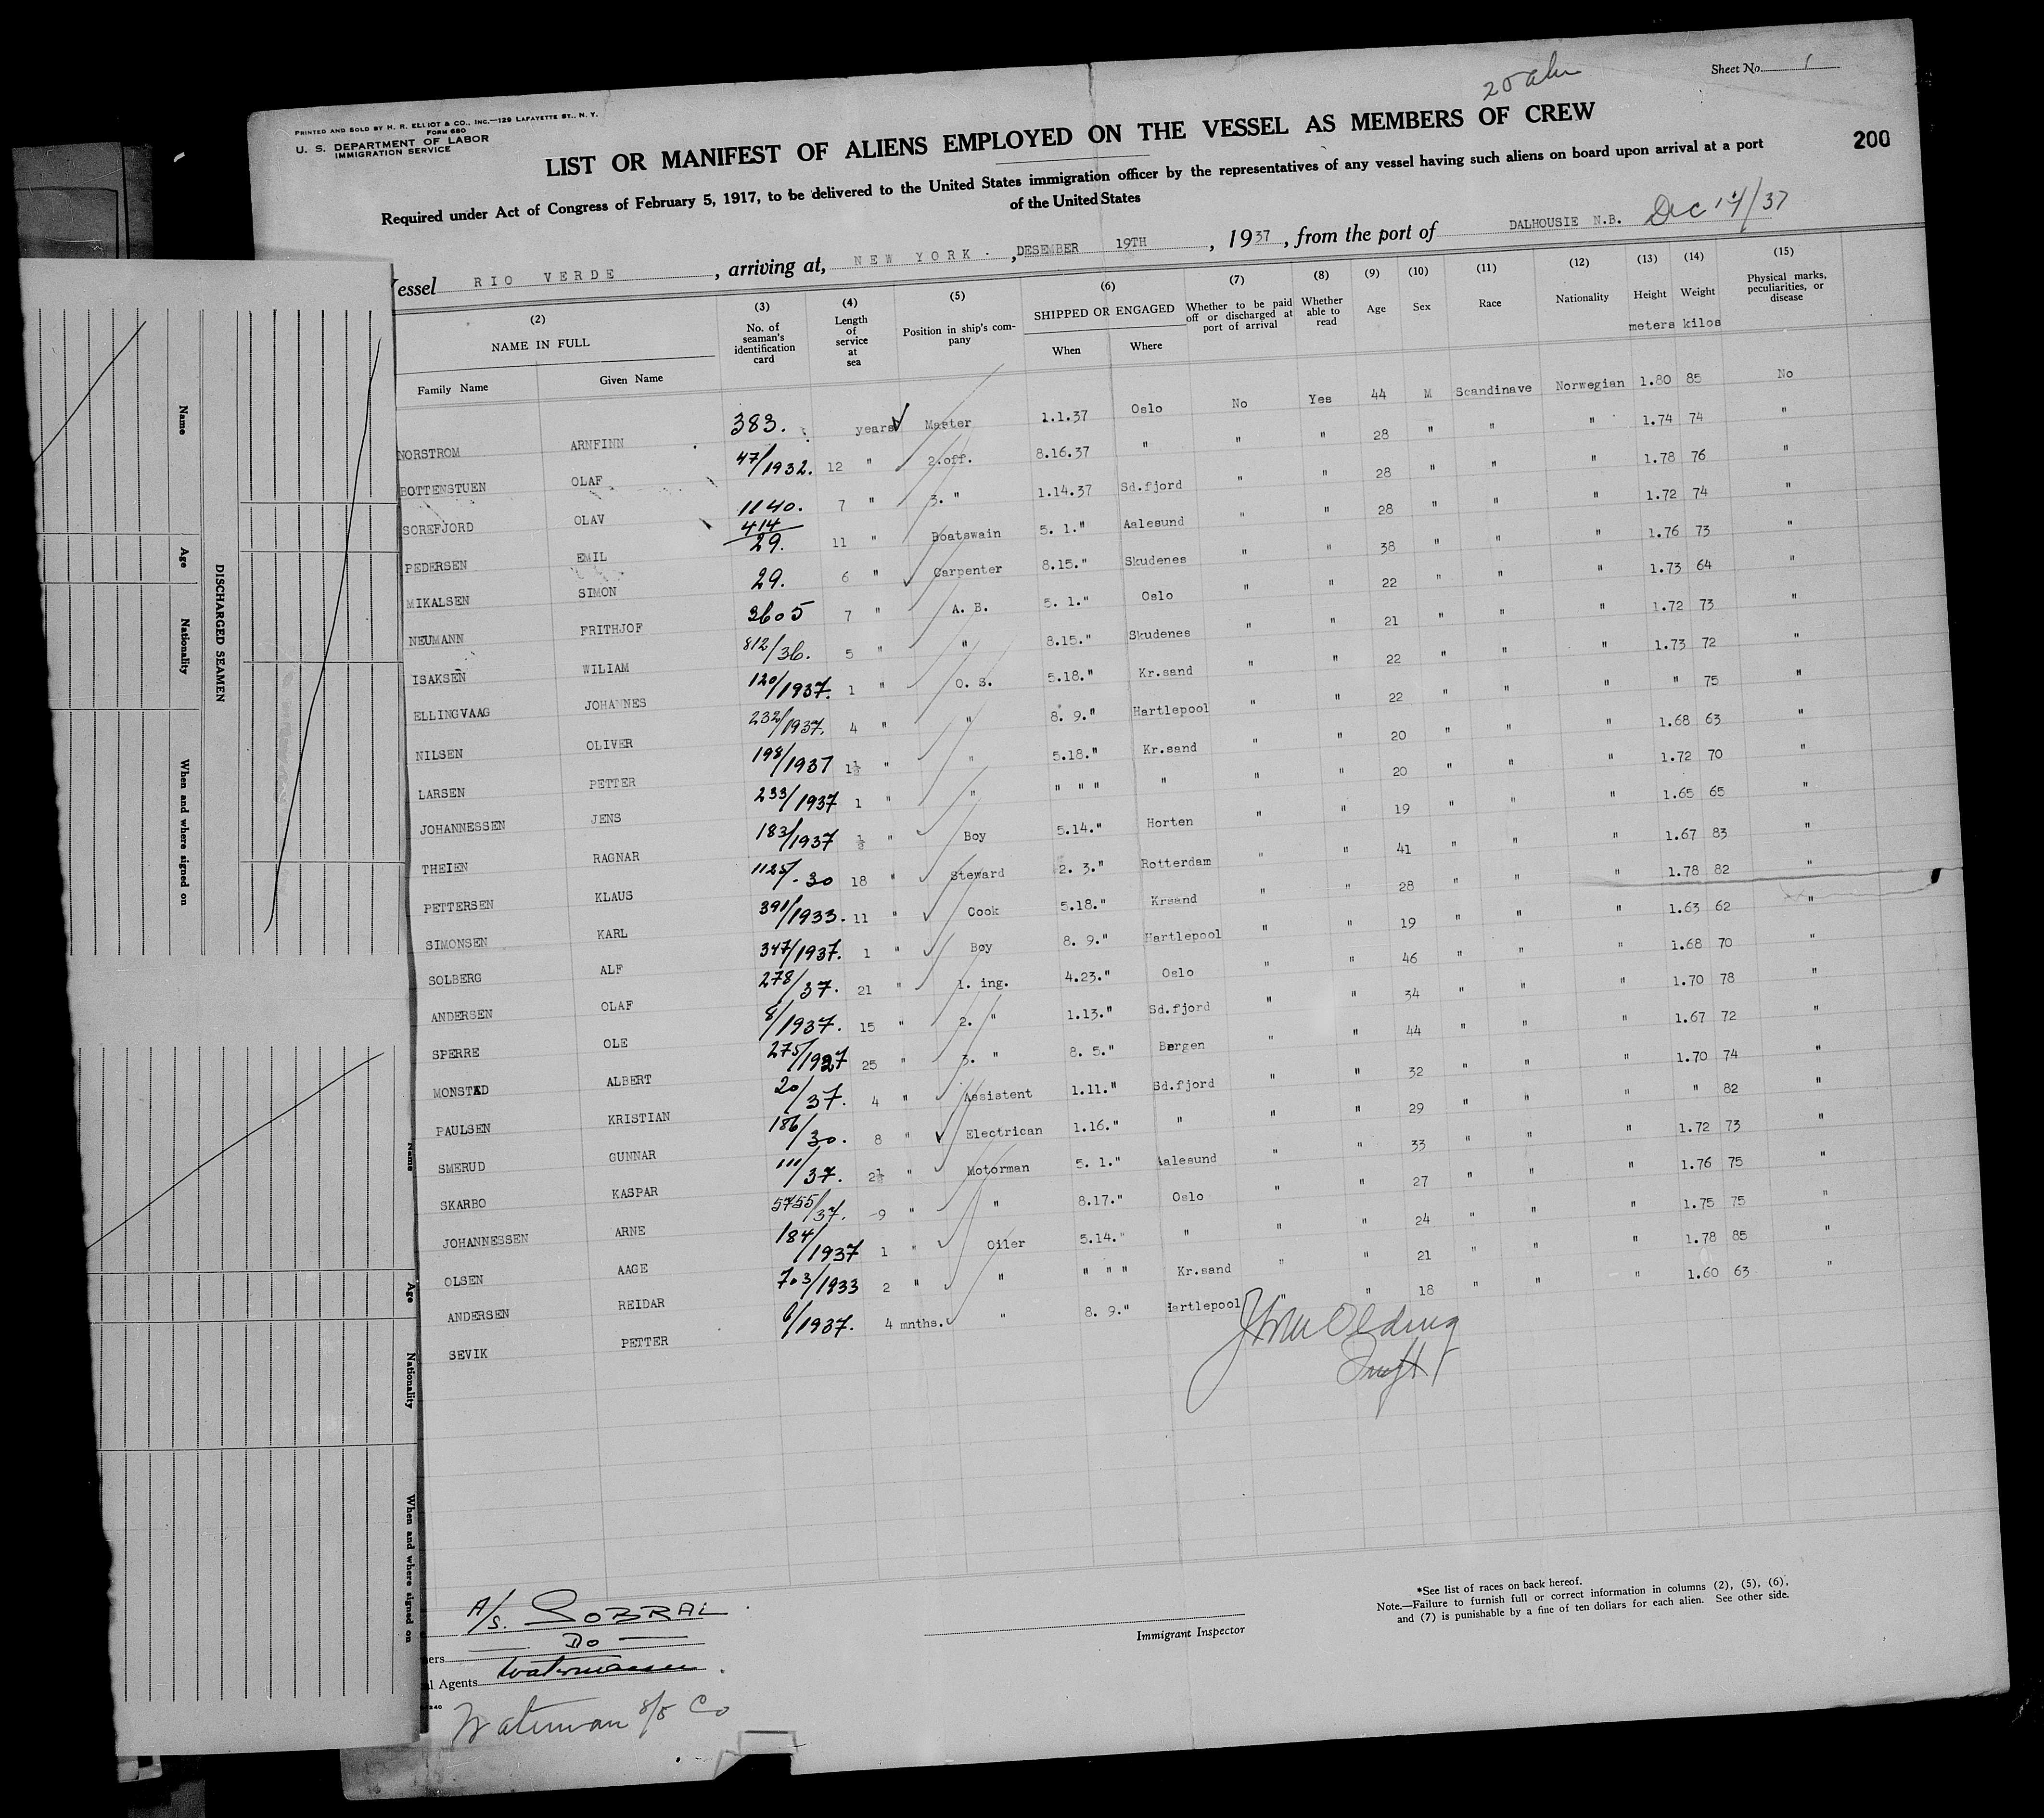 Sheet No. 1
PRINTED AND SOLD BY H. R. ELLIOT & CO., INC.—129 LAFAYETTE ST., N. Y.
FORM 680
U. S. DEPARTMENT OF LABOR
IMMIGRATION SERVICE
LIST OR MANIFEST OF ALIENS EMPLOYED ON THE VESSEL AS MEMBERS OF CREW
200
Required under Act of Congress of February 5, 1917, to be delivered to the United States immigration officer by the representatives of any vessel having such aliens on board upon arrival at a port
of the United States
Dec 17/37
Vessel RIO VERDE, arriving at, NEW YORK. , DESEMBER 19TH, 1937, from the port of DALHOUSIE N.B.
(2) (3) (4) (5) (6) (7) (8) (9) (10) (11) (12) (13) (14) (15)
NAME IN FULL
Family Name
Given Name
No. of seaman's identification card
Length of service at sea
Position in ship's company
SHIPPED OR ENGAGED
When
Where
Whether to be paid off or discharged at port of arrival
Whether able to read
Age
Sex
Race
Nationality
Height meters
Weight kilos
Physical marks, peculiarities, or disease
NORSTROM ARNFINN 383. years Master 1.1.37 Oslo No Yes 44 M Scandinave Norwegian 1.80 85 No
BOTTENSTUEN OLAF 47/1932. 12 " 2.off. 8.16.37 " " " 28 " " " 1.74 74 "
SOREFJORD OLAV 1140. 7 " 3. " 1.14.37 Sd.fjord " " 28 " " " 1.78 76 "
PEDERSEN EMIL 414/29. 11 " Boatswain 5. 1." Aalesund " " 28 " " " 1.72 74 "
MIKALSEN SIMON 29. 6 " Carpenter 8.15." Skudenes " " 38 " " " 1.76 73 "
NEUMANN FRITHJOF 3605 7 " A. B. 5. 1." Oslo " " 22 " " " 1.73 64 "
ISAKSEN WILIAM 812/36. 5 " " 8.15." Skudenes " " 21 " " " 1.72 73 "
ELLINGVAAG JOHANNES 120/1937. 1 " O. S. 5.18." Kr.sand " " 22 " " " 1.73 72 "
NILSEN OLIVER 232/1937. 4 " " 8. 9." Hartlepool " " 22 " " " " 75 "
LARSEN PETTER 198/1937 1½ " " 5.18." Kr.sand " " 20 " " " 1.68 63 "
JOHANNESSEN JENS 233/1937 1 " " " " " " " " 20 " " " 1.72 70 "
THEIEN RAGNAR 183/1937 ½ " Boy 5.14." Horten " " 19 " " " 1.65 65 "
PETTERSEN KLAUS 1125/-30 18 " Steward 2. 3." Rotterdam " " 41 " " " 1.67 83 "
SIMONSEN KARL 391/1933. 11 " Cook 5.18." Krsand " " 28 " " " 1.78 82 "
SOLBERG ALF 347/1937. 1 " Boy 8. 9." Hartlepool " " 19 " " " 1.63 62 "
ANDERSEN OLAF 278/37. 21 " 1. ing. 4.23." Oslo " " 46 " " " 1.68 70 "
SPERRE OLE 8/1937. 15 " 2. " 1.13." Sd.fjord " " 34 " " " 1.70 78 "
MONSTAD ALBERT 275/1927 25 " 3. " 8. 5." Bergen " " 44 " " " 1.67 72 "
PAULSEN KRISTIAN 20/37. 4 " Assistent 1.11." Sd.fjord " " 32 " " " 1.70 74 "
SMERUD GUNNAR 186/30. 8 " Electrican 1.16." " " " 29 " " " " 82 "
SKARBO KASPAR 111/37. 2½ " Motorman 5. 1." Aalesund " " 33 " " " 1.72 73 "
JOHANNESSEN ARNE 5755/37. -9 " " 8.17." Oslo " " 27 " " " 1.76 75 "
OLSEN AAGE 184/1937 1 " Oiler 5.14." " " " 24 " " " 1.75 75 "
ANDERSEN REIDAR 703/1933 2 " " " " " Kr.sand " " 21 " " " 1.78 85 "
SEVIK PETTER 6/1937. 4 mnths. " 8. 9." Hartlepool " " 18 " " " 1.60 63 "
A/S. SOBRAL
Do
ners
l Agents
Waterman S/S Co
Immigrant Inspector
*See list of races on back hereof.
Note.—Failure to furnish full or correct information in columns (2), (5), (6),
and (7) is punishable by a fine of ten dollars for each alien. See other side.
DISCHARGED SEAMEN
Name
Age
Nationality
When and where signed on
Name
Age
Nationality
When and where signed on